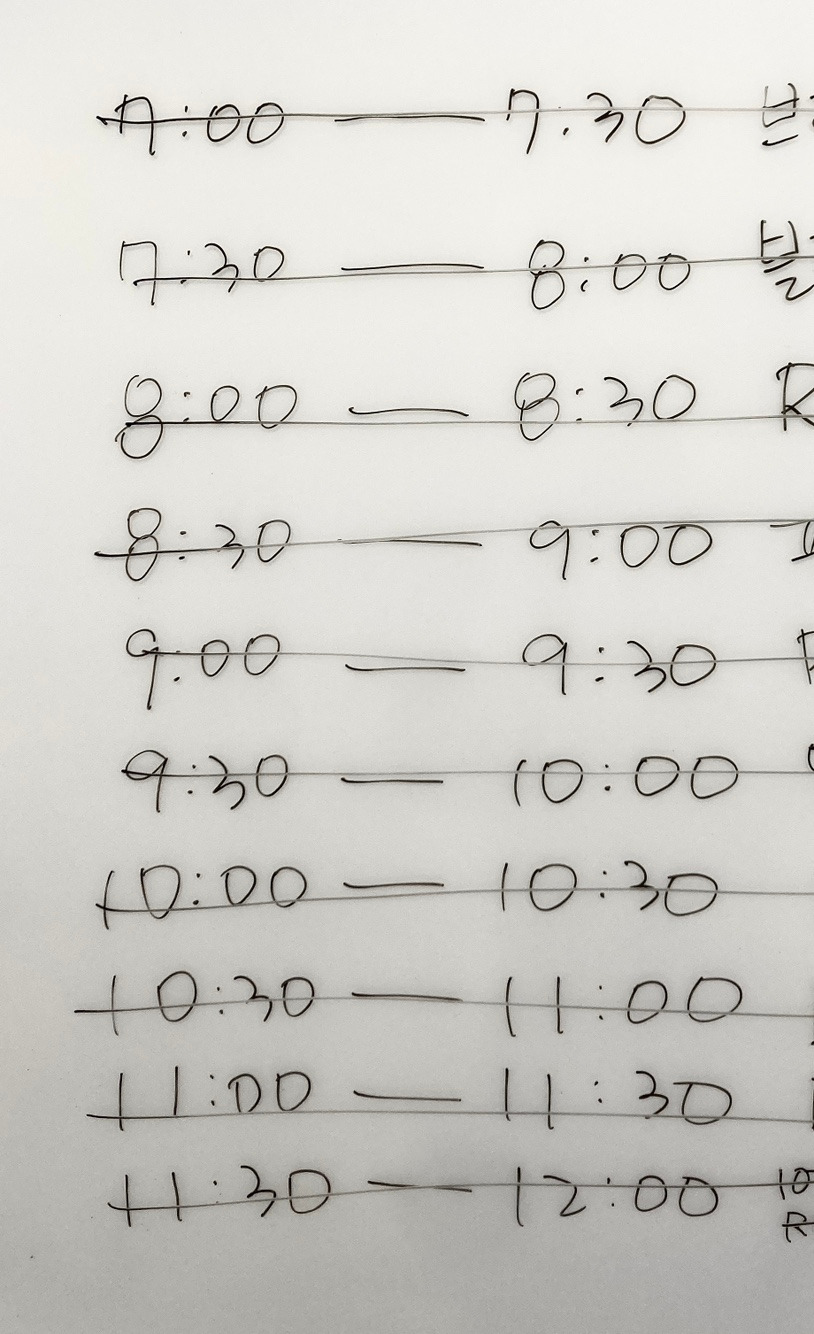 7:00 — 7:30
7:30 — 8:00
8:00 — 8:30 R
8:30 — 9:00
9:00 — 9:30
9:30 — 10:00
10:00 — 10:30
10:30 — 11:00
11:00 — 11:30
11:30 — 12:00 10
R